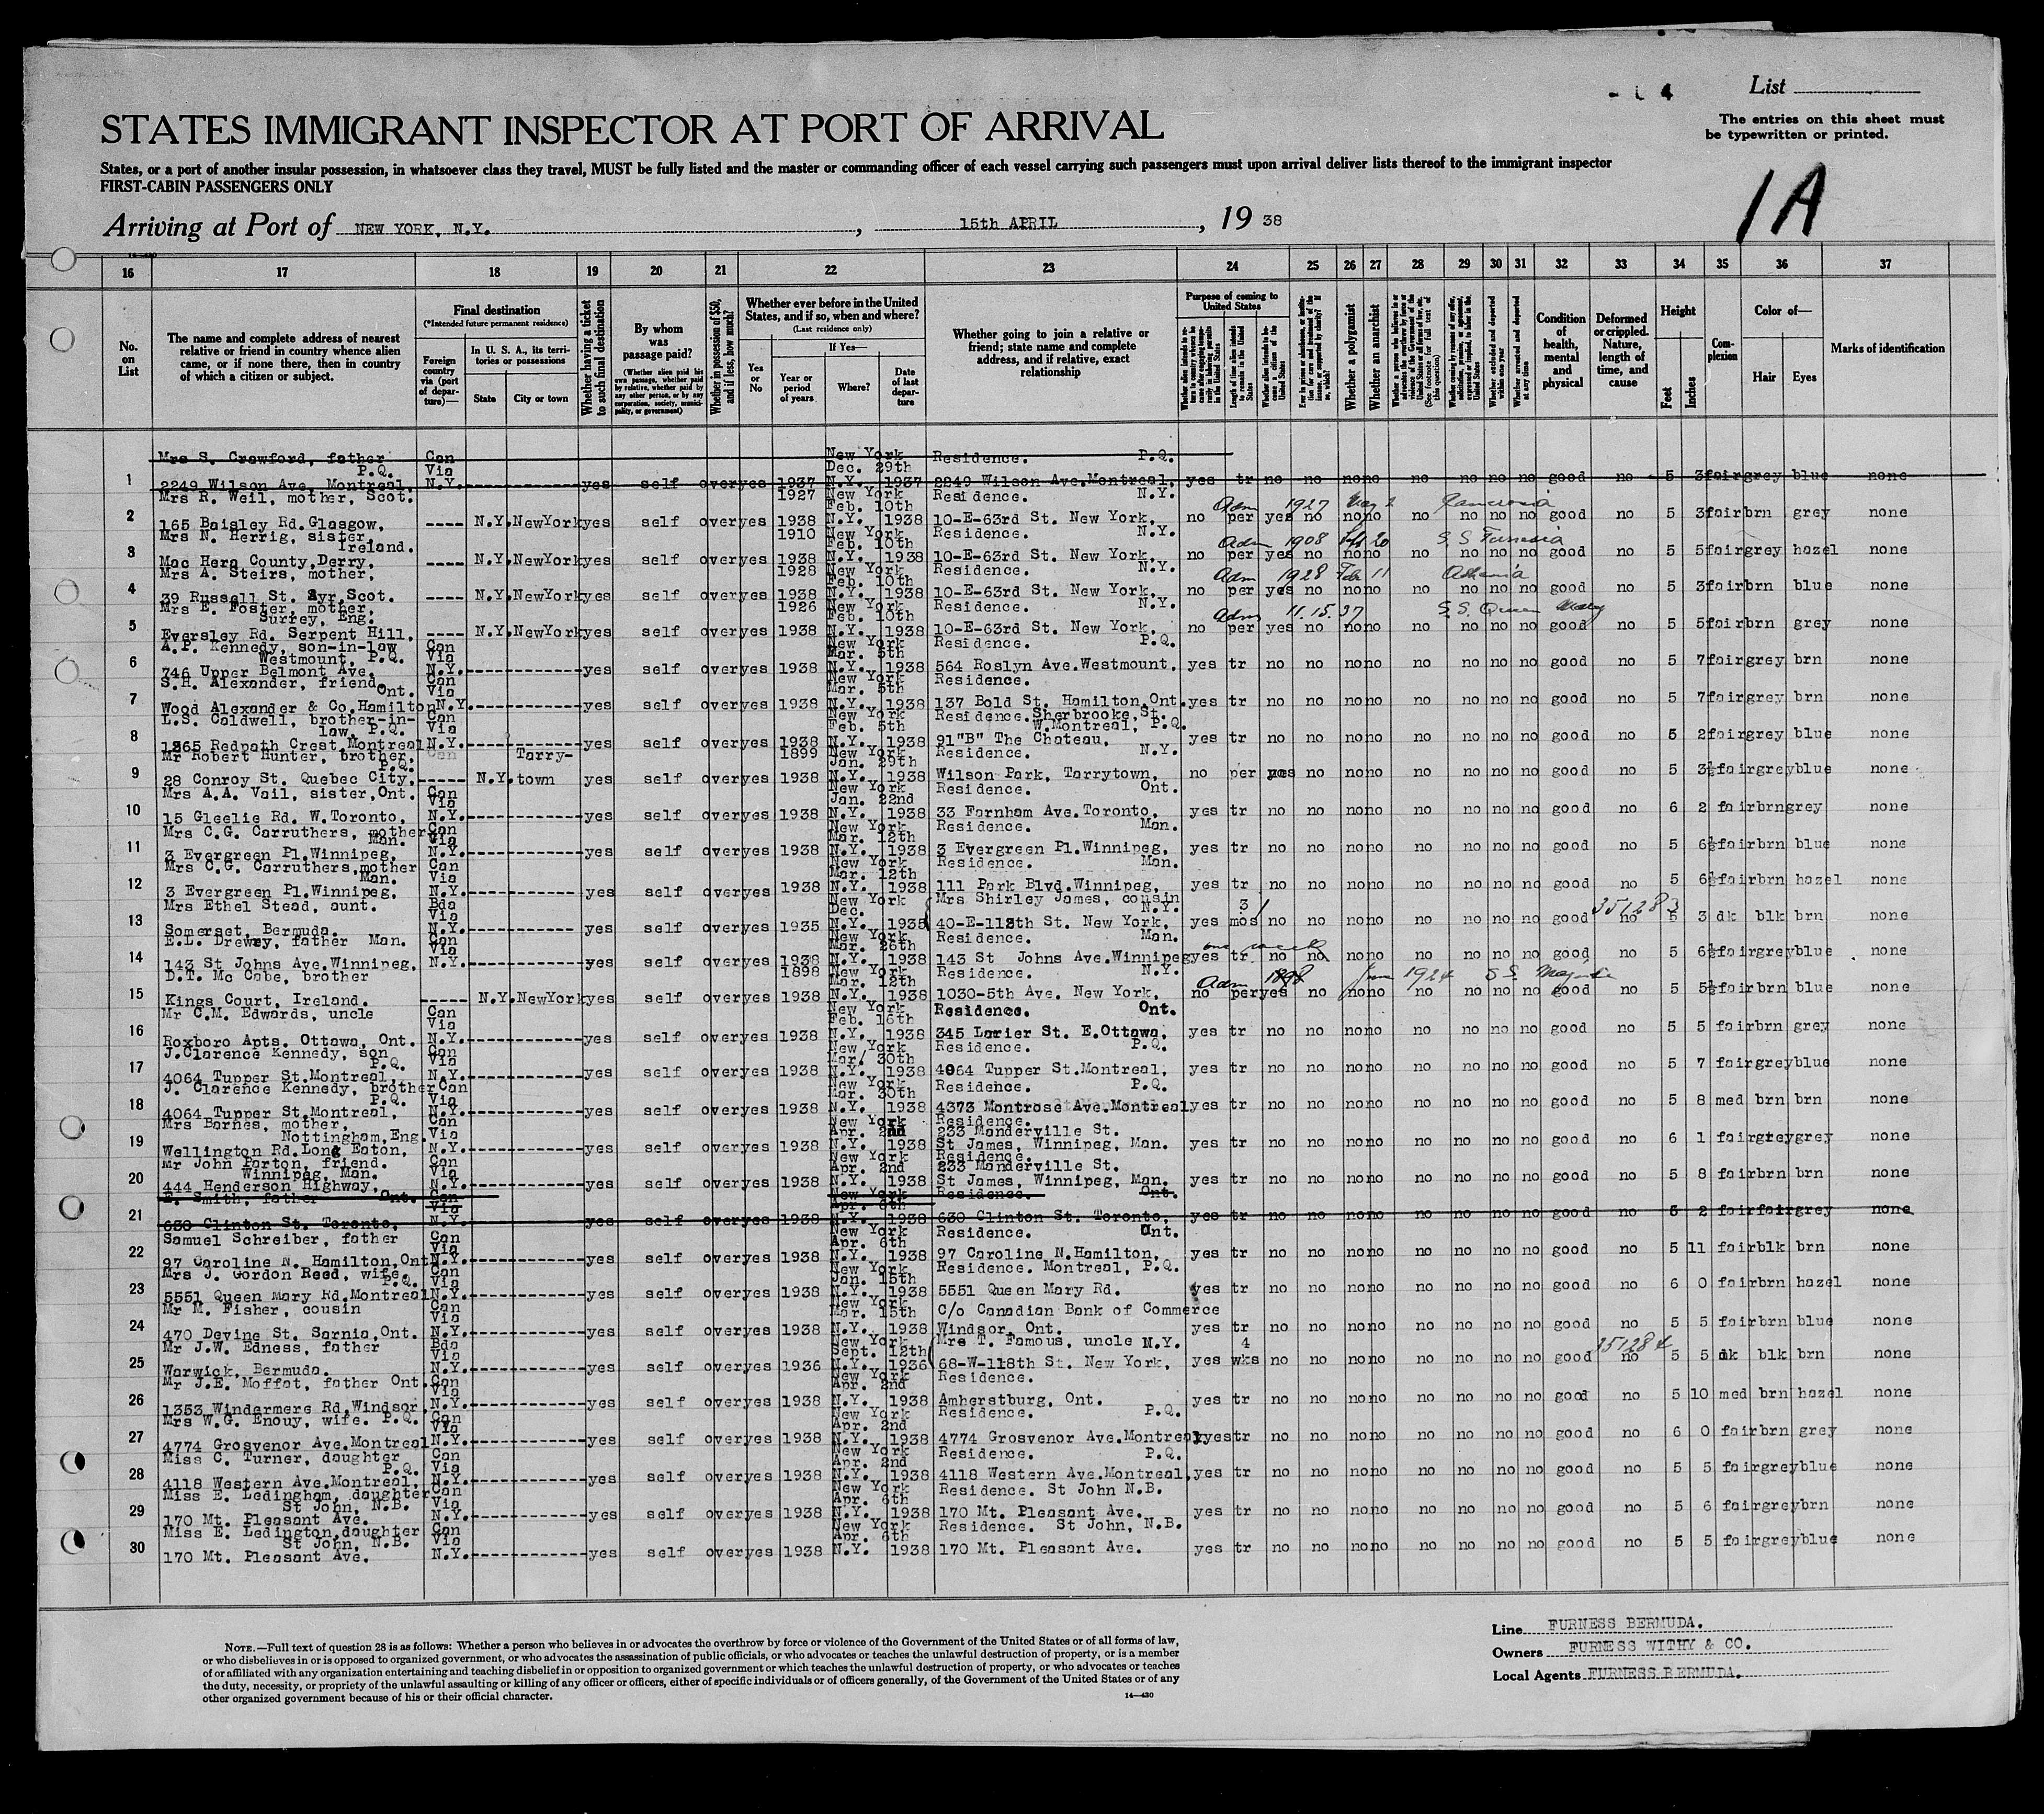 List
The entries on this sheet must
be typewritten or printed.
STATES IMMIGRANT INSPECTOR AT PORT OF ARRIVAL
States, or a port of another insular possession, in whatsoever class they travel, MUST be fully listed and the master or commanding officer of each vessel carrying such passengers must upon arrival deliver lists thereof to the immigrant inspector
FIRST-CABIN PASSENGERS ONLY
1A
Arriving at Port of NEW YORK, N.Y. , 15th APRIL , 19 38
16 17 18 19 20 21 22 23 24 25 26 27 28 29 30 31 32 33 34 35 36 37
No. on List
The name and complete address of nearest relative or friend in country whence alien came, or if none there, then in country of which a citizen or subject.
Final destination
(*Intended future permanent residence)
Foreign country via (port of departure)—
In U. S. A., its territories or possessions
State
City or town
Whether having a ticket to such final destination
By whom was passage paid?
(Whether alien paid his own passage, whether paid by relative, whether paid by any other person, or by any corporation, society, municipality, or government)
Whether in possession of $50, and if less, how much?
Whether ever before in the United States, and if so, when and where?
(Last residence only)
Yes or No
If Yes—
Year or period of years
Where?
Date of last departure
Whether going to join a relative or friend; state name and complete address, and if relative, exact relationship
Purpose of coming to United States
Whether a polygamist
Whether an anarchist
Condition of health, mental and physical
Deformed or crippled. Nature, length of time, and cause
Height
Feet
Inches
Complexion
Color of—
Hair
Eyes
Marks of identification
Mrs S. Crawford, father Can New York Residence. P.Q.
P.Q. Via Dec. 29th
1 2249 Wilson Ave. Montreal, N.Y. yes self over yes 1937 N.Y. 1937 2249 Wilson Ave. Montreal, yes tr no no no no no no no no good no 5 3 fair grey blue none
Mrs R. Weil, mother, Scot. 1927 New York Residence. N.Y.
Feb. 10th Adm 1927
2 165 Baisley Rd. Glasgow, ---- N.Y. New York yes self over yes 1938 N.Y. 1938 10-E-63rd St. New York, no per yes no no no no no no no good no 5 3 fair brn grey none
Mrs N. Herrig, sister, 1910 New York Residence. N.Y.
Ireland. Feb. 10th Adm 1908
3 Mac Hera County, Derry, ---- N.Y. New York yes self over yes 1938 N.Y. 1938 10-E-63rd St. New York, no per yes no no no no no no no good no 5 5 fair grey hazel none
Mrs A. Steirs, mother, 1928 New York Residence. N.Y.
Feb. 10th Adm 1928 Feb 11
4 39 Russell St. Ayr, Scot. ---- N.Y. New York yes self over yes 1938 N.Y. 1938 10-E-63rd St. New York, no per yes no no no no no no no good no 5 3 fair brn blue none
Mrs E. Foster, mother, 1926 New York Residence. N.Y.
Surrey, Eng. Feb. 10th Adm 11.15.37 S.S. Queen Mary
5 Eversley Rd. Serpent Hill, ---- N.Y. New York yes self over yes 1938 N.Y. 1938 10-E-63rd St. New York, no per yes no no no no no no no good no 5 5 fair brn grey none
A.P. Kennedy, son-in-law Can New York Residence. P.Q.
Westmount, P.Q. Via Mar. 5th
6 746 Upper Belmont Ave. N.Y. yes self over yes 1938 N.Y. 1938 564 Roslyn Ave. Westmount, yes tr no no no no no no no no good no 5 7 fair grey brn none
S.H. Alexander, friend, Can New York Residence.
Ont. Via Mar. 5th
7 Wood Alexander & Co. Hamilton N.Y. yes self over yes 1938 N.Y. 1938 137 Bold St. Hamilton, Ont. yes tr no no no no no no no no good no 5 7 fair grey brn none
L.S. Caldwell, brother-in- Can New York Residence. Sherbrooke, St.
law, P.Q. Via Feb. 5th W. Montreal, P.Q.
8 1265 Redpath Crest, Montreal N.Y. yes self over yes 1938 N.Y. 1938 91"B" The Chateau, yes tr no no no no no no no no good no 5 2 fair grey blue none
Mr Robert Hunter, brother, Tarry- 1899 New York Residence. N.Y.
P.Q. Jan. 29th
9 28 Conroy St. Quebec City, ----- N.Y. town yes self over yes 1938 N.Y. 1938 Wilson Park, Tarrytown, no per yes no no no no no no no good no 5 3½ fair grey blue none
Mrs A.A. Vail, sister, Ont. Can New York Residence. Ont.
Via Jan. 22nd
10 15 Gleelie Rd. W. Toronto, N.Y. yes self over yes 1938 N.Y. 1938 33 Farnham Ave. Toronto, yes tr no no no no no no no no good no 6 2 fair brn grey none
Mrs C.G. Carruthers, mother Can New York Residence. Man.
Man. Via Mar. 12th
11 3 Evergreen Pl. Winnipeg, N.Y. yes self over yes 1938 N.Y. 1938 3 Evergreen Pl. Winnipeg, yes tr no no no no no no no no good no 5 6½ fair brn blue none
Mrs C.G. Carruthers, mother Can New York Residence. Man.
Man. Via Mar. 12th
12 3 Evergreen Pl. Winnipeg, N.Y. yes self over yes 1938 N.Y. 1938 111 Park Blvd. Winnipeg, yes tr no no no no no no no no good no 5 6½ fair brn hazel none
Mrs Ethel Stead, aunt. Bda New York Mrs Shirley James, cousin
Via Dec. N.Y. 3 351283
13 Somerset, Bermuda. N.Y. yes self over yes 1935 N.Y. 1935 40-E-112th St. New York, yes mos no no no no no no no no good no 5 3 dk blk brn none
E.L. Drewry, father Man. Can New York Residence. Man.
Via Mar. 26th one week
14 143 St Johns Ave. Winnipeg, N.Y. yes self over yes 1938 N.Y. 1938 143 St Johns Ave. Winnipeg yes tr no no no no no no no no good no 5 6½ fair grey blue none
D.T. Mc Cabe, brother 1898 New York Residence. N.Y.
Mar. 12th Adm 1898 June 1924 S S Majestic
15 Kings Court, Ireland. ----- N.Y. New York yes self over yes 1938 N.Y. 1938 1030-5th Ave. New York, no per yes no no no no no no no good no 5 5½ fair brn blue none
Mr C.M. Edwards, uncle Can New York Residence. Ont.
Via Feb. 16th
16 Roxboro Apts. Ottawa, Ont. N.Y. yes self over yes 1938 N.Y. 1938 345 Larier St. E. Ottawa, yes tr no no no no no no no no good no 5 5 fair brn grey none
J. Clarence Kennedy, son Can New York Residence. P.Q.
P.Q. Via Mar. 30th
17 4064 Tupper St. Montreal, N.Y. yes self over yes 1938 N.Y. 1938 4064 Tupper St. Montreal, yes tr no no no no no no no no good no 5 7 fair grey blue none
J. Clarence Kennedy, brother Can New York Residence. P.Q.
P.Q. Via Mar. 30th
18 4064 Tupper St. Montreal, N.Y. yes self over yes 1938 N.Y. 1938 4373 Montrose Ave. Montreal, yes tr no no no no no no no no good no 5 8 med brn brn none
Mrs Barnes, mother, Can New York Residence.
Nottingham, Eng. Via Apr. 2nd 233 Manderville St.
19 Wellington Rd. Long Eaton, N.Y. yes self over yes 1938 N.Y. 1938 St James, Winnipeg, Man. yes tr no no no no no no no no good no 6 1 fair grey grey none
Mr John Parton, friend. Can New York Residence.
Winnipeg, Man. Via Apr. 2nd 233 Manderville St.
20 444 Henderson Highway, N.Y. yes self over yes 1938 N.Y. 1938 St James, Winnipeg, Man. yes tr no no no no no no no no good no 5 8 fair brn brn none
E. Smith, father Ont. Can New York Residence. Ont.
Via Apr. 6th
21 630 Clinton St. Toronto, N.Y. yes self over yes 1938 N.Y. 1938 630 Clinton St. Toronto, yes tr no no no no no no no no good no 5 2 fair fair grey none
Samuel Schreiber, father Can New York Residence. Ont.
Via Apr. 6th
22 97 Caroline N. Hamilton, Ont N.Y. yes self over yes 1938 N.Y. 1938 97 Caroline N. Hamilton, yes tr no no no no no no no no good no 5 11 fair blk brn none
Mrs J. Gordon Reed, wife, Can New York Residence. Montreal, P.Q.
P.Q. Via Jan. 15th
23 5551 Queen Mary Rd. Montreal N.Y. yes self over yes 1938 N.Y. 1938 5551 Queen Mary Rd. yes tr no no no no no no no no good no 6 0 fair brn hazel none
Mr M. Fisher, cousin Can New York C/o Canadian Bank of Commerce
Via Mar. 15th
24 470 Devine St. Sarnia, Ont. N.Y. yes self over yes 1938 N.Y. 1938 Windsor, Ont. yes tr no no no no no no no no good no 5 5 fair brn blue none
Mr J.W. Edness, father Bda New York Mrs T. Famous, uncle N.Y. 4 351284
Via Sept. 12th
25 Warwick, Bermuda. N.Y. yes self over yes 1936 N.Y. 1936 68-W-118th St. New York, yes wks no no no no no no no no good no 5 5 dk blk brn none
Mr J.E. Moffat, father Ont. Can New York Residence.
Via Apr. 2nd
26 1353 Windermere Rd, Windsor, N.Y. yes self over yes 1938 N.Y. 1938 Amherstburg, Ont. yes tr no no no no no no no no good no 5 10 med brn hazel none
Mrs W.G. Enouy, wife. P.Q. Can New York Residence. P.Q.
Via Apr. 2nd
27 4774 Grosvenor Ave. Montreal N.Y. yes self over yes 1938 N.Y. 1938 4774 Grosvenor Ave. Montreal, yes tr no no no no no no no no good no 6 0 fair brn grey none
Miss C. Turner, daughter Can New York Residence. P.Q.
P.Q. Via Apr. 2nd
28 4118 Western Ave. Montreal, N.Y. yes self over yes 1938 N.Y. 1938 4118 Western Ave. Montreal, yes tr no no no no no no no no good no 5 5 fair grey blue none
Miss E. Ledingham, daughter Can New York Residence. St John N.B.
St John, N.B. Via Apr. 6th
29 170 Mt. Pleasant Ave. N.Y. yes self over yes 1938 N.Y. 1938 170 Mt. Pleasant Ave. yes tr no no no no no no no no good no 5 6 fair grey brn none
Miss E. Ledington, daughter Can New York Residence. St John, N.B.
St John, N.B. Via Apr. 6th
30 170 Mt. Pleasant Ave. N.Y. yes self over yes 1938 N.Y. 1938 170 Mt. Pleasant Ave. yes tr no no no no no no no no good no 5 5 fair grey blue none
Line FURNESS BERMUDA.
Owners FURNESS WITHY & CO.
Local Agents FURNESS BERMUDA.
NOTE.—Full text of question 28 is as follows: Whether a person who believes in or advocates the overthrow by force or violence of the Government of the United States or of all forms of law,
or who disbelieves in or is opposed to organized government, or who advocates the assassination of public officials, or who advocates or teaches the unlawful destruction of property, or is a member
of or affiliated with any organization entertaining and teaching disbelief in or opposition to organized government or which teaches the unlawful destruction of property, or who advocates or teaches
the duty, necessity, or propriety of the unlawful assaulting or killing of any officer or officers, either of specific individuals or of officers generally, of the Government of the United States or of any
other organized government because of his or their official character.
14—430